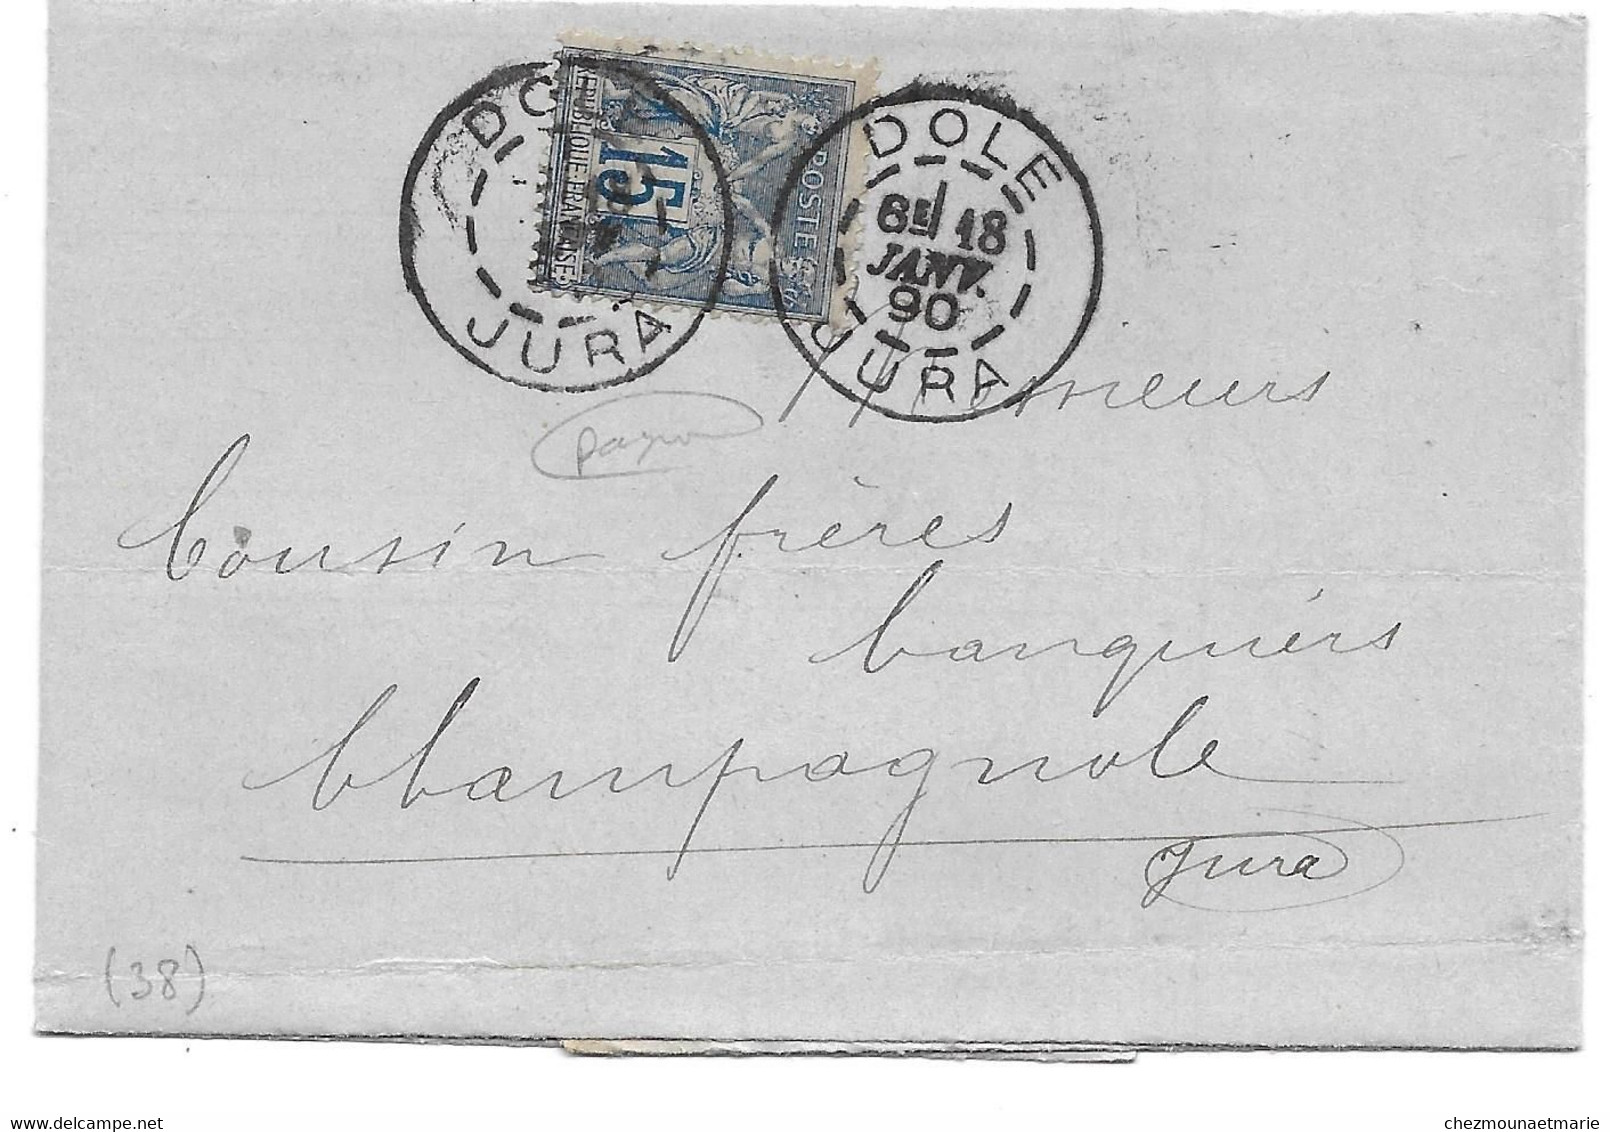 DOLE
JURA
REPUBLIQUE FRANÇAISE
15
POSTES
DOLE
6E/18
JANV.
90
JURA
Messieurs
Cousin frères
banquiers
Champagnole
Jura
(38)
www.delcampe.net
chezmounaetmarie